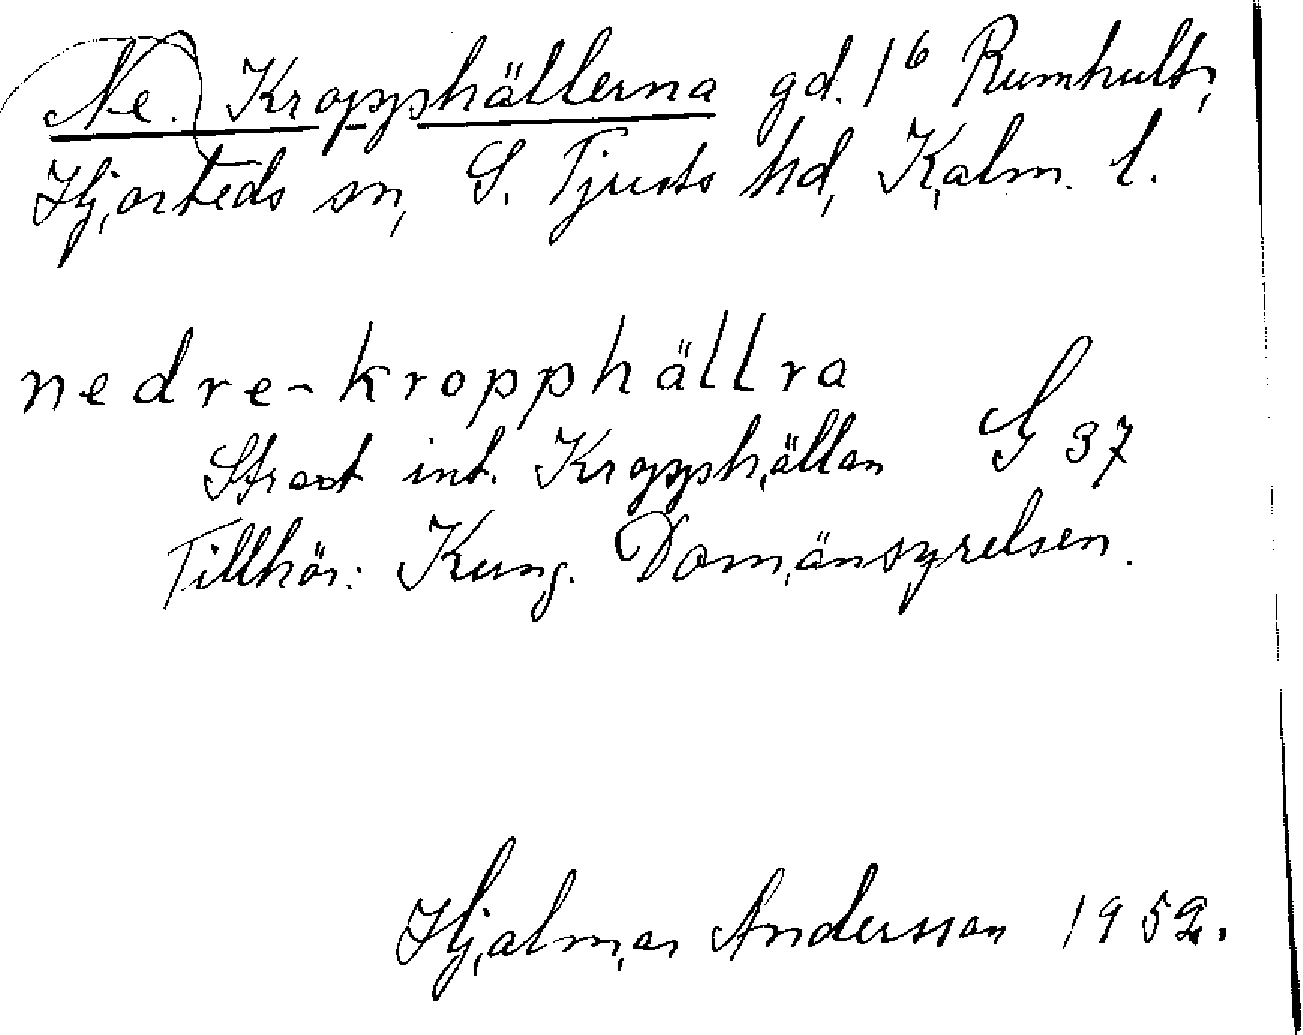 Ne. Kropphällerna gd. 1⁶ Rumhult,
Hjorteds sn, S. Tjusts hd, Kalm. l.
nedre-kropphällra
Strax int. Kropphällan G 37
Tillhör: Kung. Domänsyrelsen.
Hjalmar Andersson 1952.